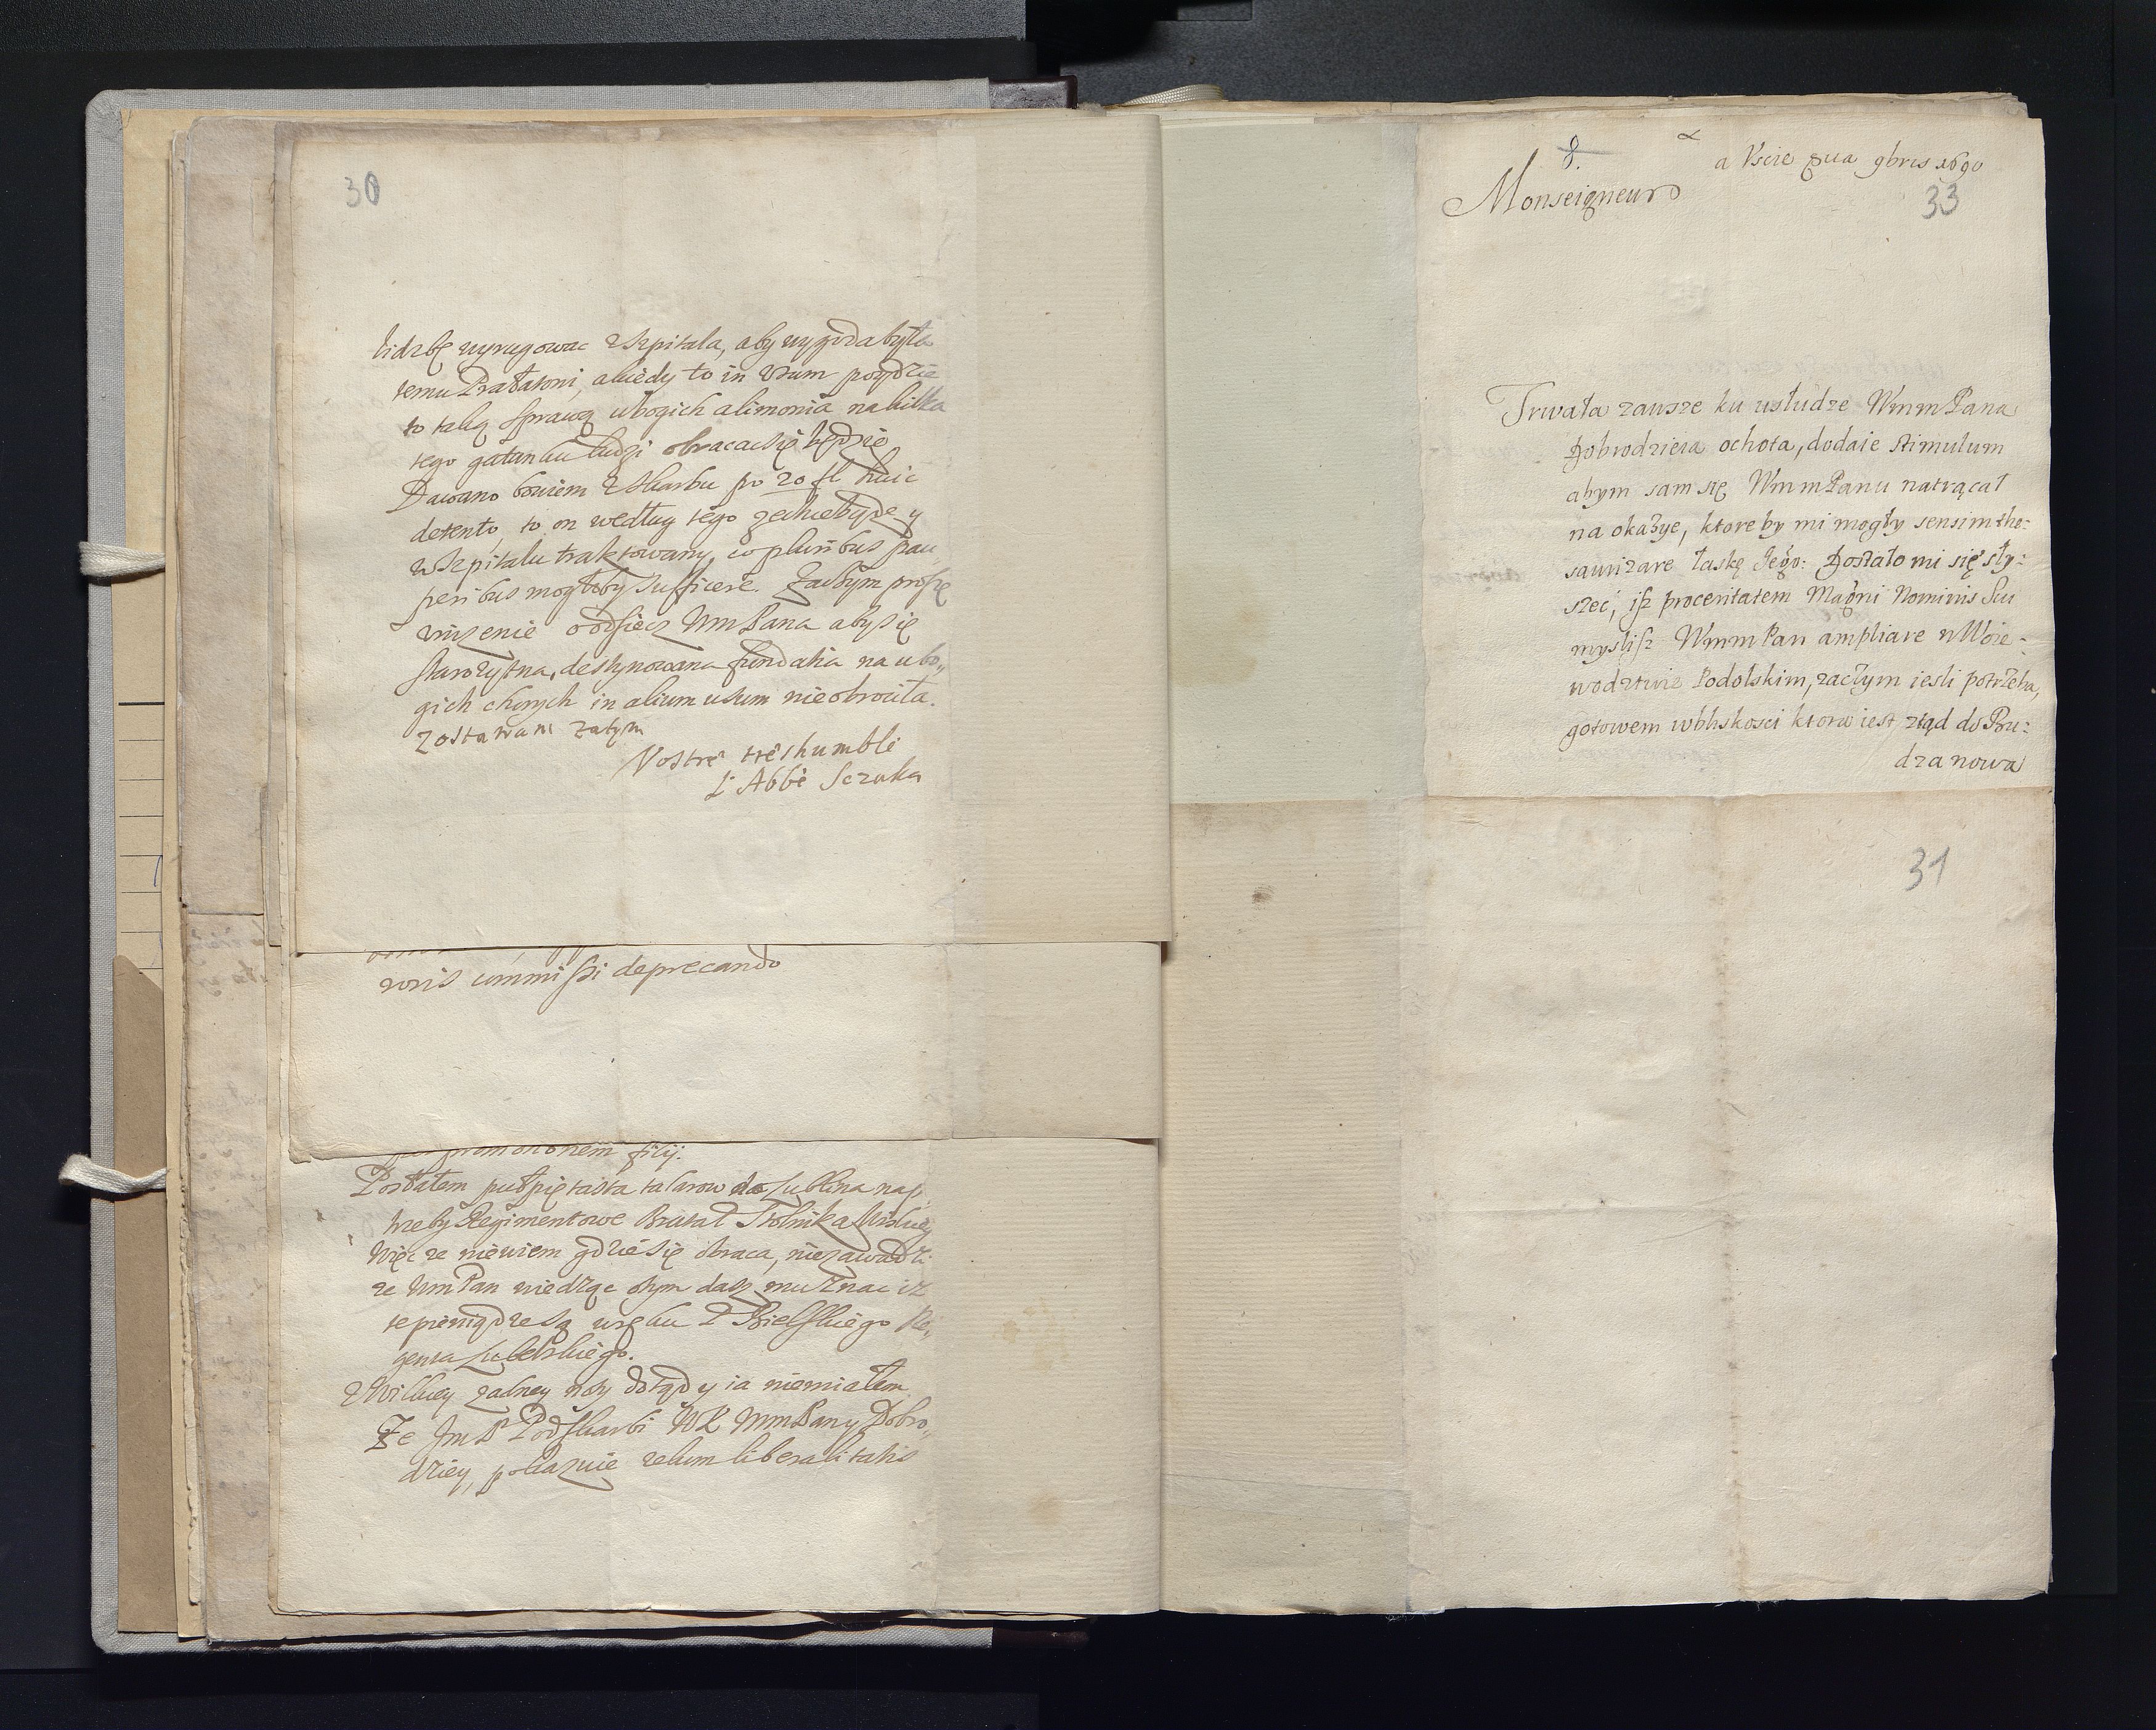 30
liczbę wyrugowac z Szpitala, aby wygoda była
temu Prałatowi, a kiedy to in usum poydzie
to taką sprawą ubogich alimonia na kilka
tego gatunku ludzi obracac się będzie
Dawano bowiem z Skarbu po 20 fl huic
detento, to on według tego zechce byde y
w Szpitalu traktowany, co pluribus pau
peribus mogłoby sufficere. Zaczym proszę
uniżenie WmPana aby się
starożytna, destynowana fundatia na ubo„
gich chorych in alium usum nie obrociła.
Zostawam zatym
Vostre tres humble
L'Abbè Sczuka
roris commissi deprecando
promotionem filij.
Posłałem pułpiętasta talarow do Lublina na
Regimentowe Stolnika
Więc ze niewiem gdzie się obraca, niezawadzi
ze WmPan wiedząc otym dasz mu znac iz
te pieniądze są w ręku P Bielskiego Re„
genta Lubelskiego.
z Wilkiey zadney noty dotąd y ia niemiałem
Ze JmP Podskarbi WX WmPany Dobro„
dziey, pokazuie zelum liberalitatis
8.
a Uscie qua 9bris 1690
33
Monseigneur
Trwała zawsze ku usłudze WmmPana
Dobrodzieia ochota, dodaie stimulum
abym sam się WmmPanu natrącał
na okazye, ktore by mi mogły sensim the:
saurizare łaskę Jego: Dostało mi się sły:
szeć, isz proceritatem Magni Nominis Sui
myslisz WmmPan ampliare w Woie:
wodztwie Podolskim, zaczym iesli potrzeba,
gotowem w bliskosci ktora iest ztąd do Bu:
dzanowa
31